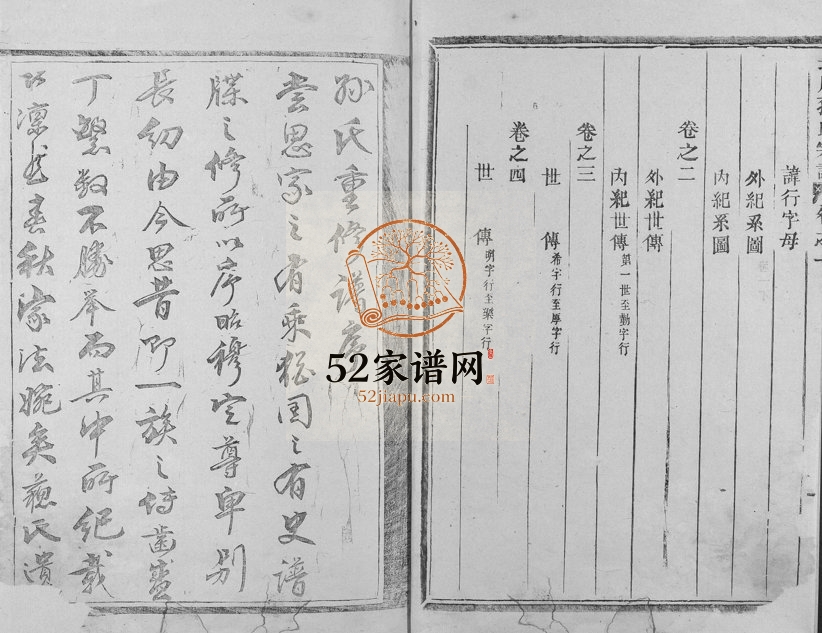 諱行字母
外紀系圖
內紀系圖
卷之二
外紀世傳
內紀世傳 第一世至勳字行
卷之三
世傳 希字行至厚字行
卷之四
世傳 明字行至樂字行
孫氏重修譜序
嘗思家之有乘猶国之有史譜
牒之修所以序昭穆定尊卑别
長幼由今思昔即一族之傳齒盛
丁繁数不勝举而其中所紀載
凛然春秋家法婉矣蘇氏潰
52家谱网
52jiapu.com